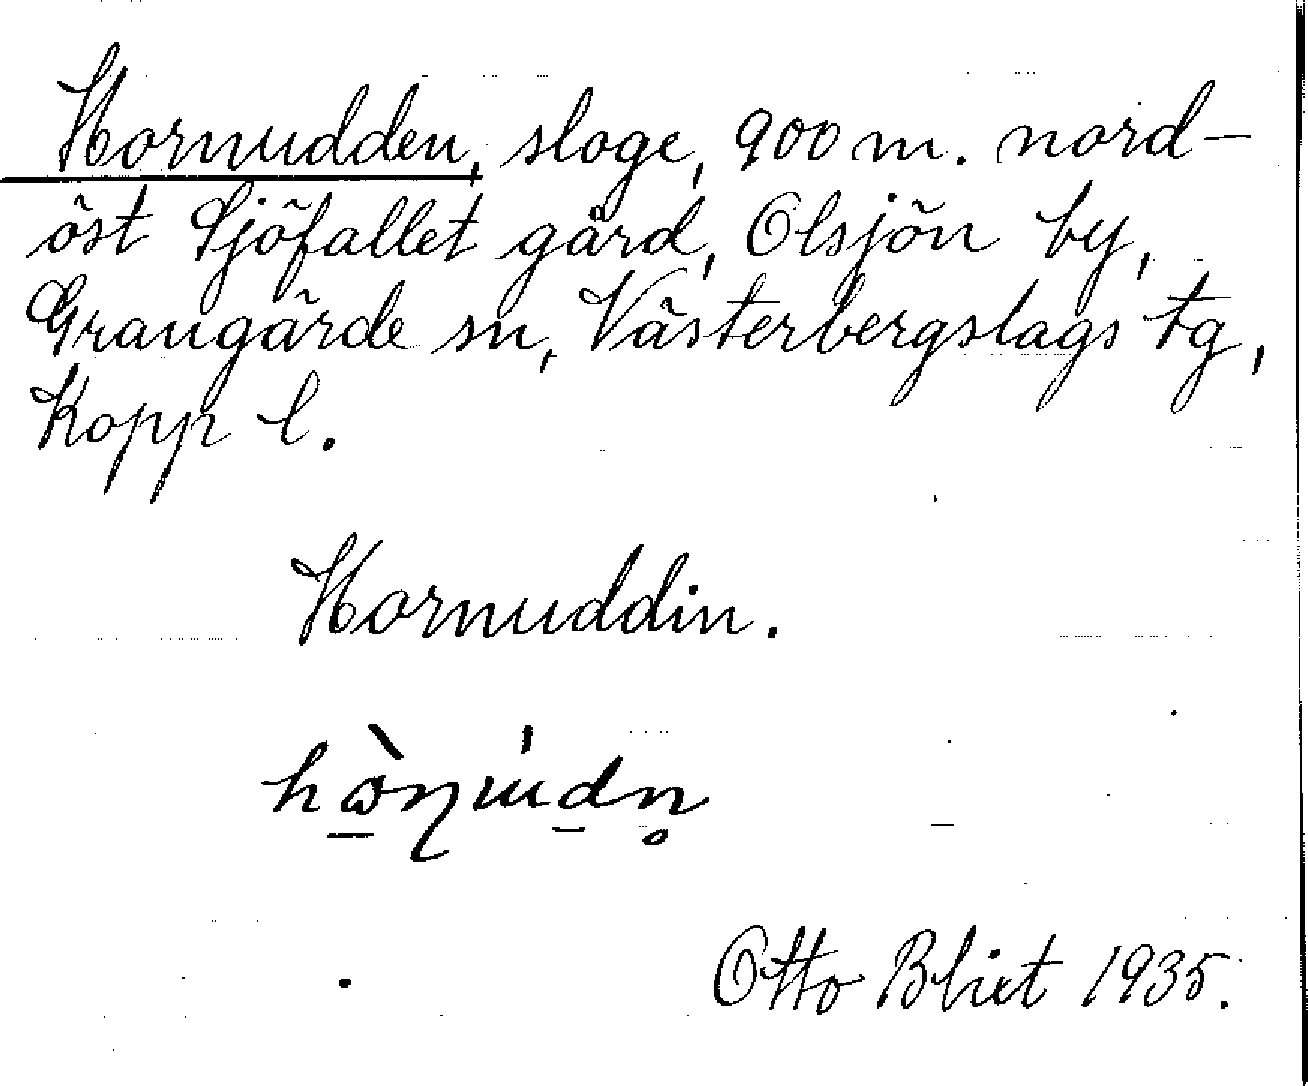 Hornudden, sloge, 900 m. nord-
öst Sjöfallet gård, Olsjön by,
Grangärde sn, Västerbergslags tg,
Kopp l.
Hornuddin.
Otto Blixt 1935.